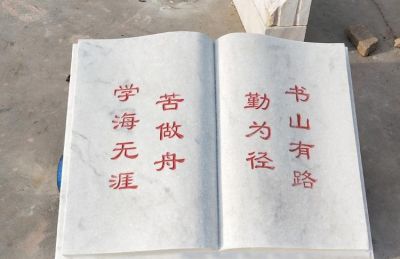 书山有路
勤为径
学海无涯
苦做舟